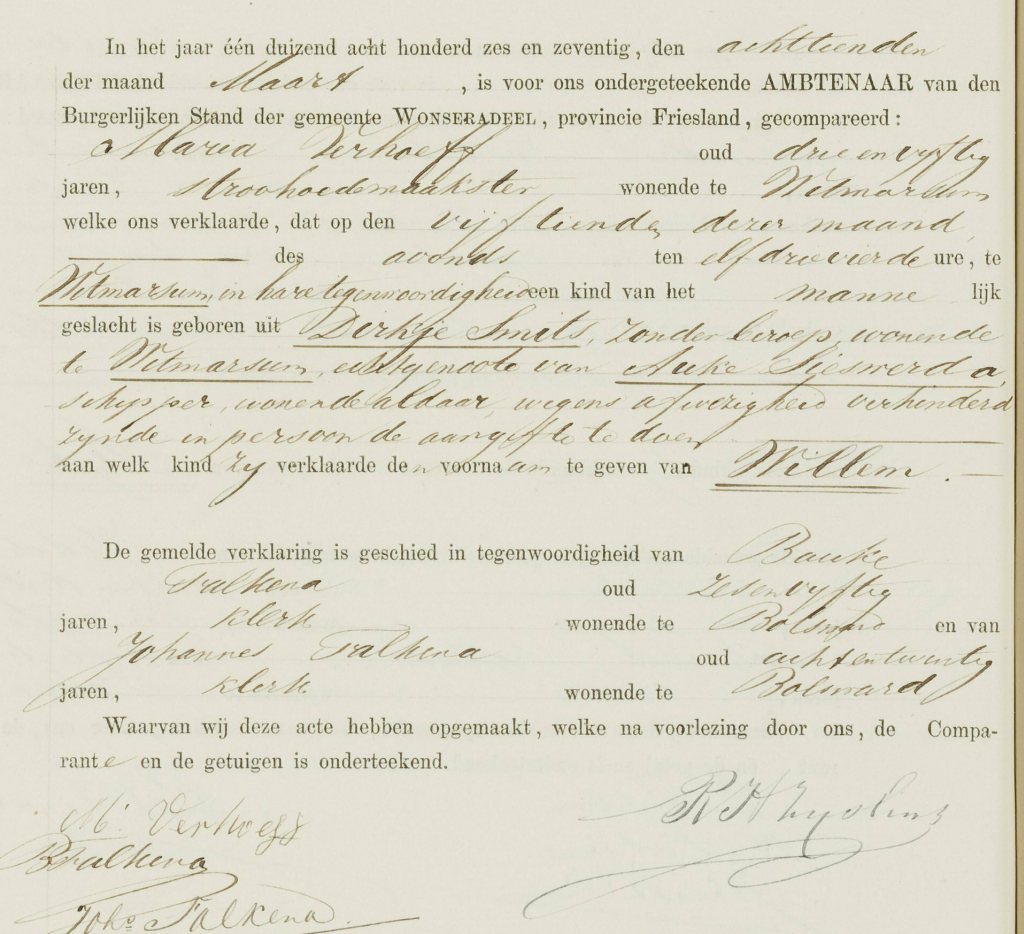 In het jaar één duizend acht honderd zes en zeventig, den achttienden
der maand Maart, is voor ons ondergeteekende AMBTENAAR van den
Burgerlijken Stand der gemeente WONSERADEEL, provincie Friesland, gecompareerd:
Maria Verhoeff oud drie en vyftig
jaren, stroohoedenmaakster wonende te Witmarsum
welke ons verklaarde, dat op den vijftienden dezer maand,
des avonds ten elf drie vierde ure, te
Witmarsum, in hare tegenwoordigheid een kind van het mannelijk
geslacht is geboren uit Dirkje Smits, zonder beroep, wonende
te Witmarsum, echtgenoote van Auke Sjeswerda,
schipper, wonende aldaar, wegens afwezigheid verhinderd
zynde in persoon de aangifte te doen
aan welk kind zy verklaarde den voornaam te geven van Willem.
De gemelde verklaring is geschied in tegenwoordigheid van Bauke
Falkena oud zesenvyftig
jaren, klerk wonende te Bolsward en van
Johannes Falkena oud achtentwintig
jaren, klerk wonende te Bolsward
Waarvan wij deze acte hebben opgemaakt, welke na voorlezing door ons, de Compa-
rante en de getuigen is onderteekend.
M. Verhoeff
BFalkena
Johs Falkena